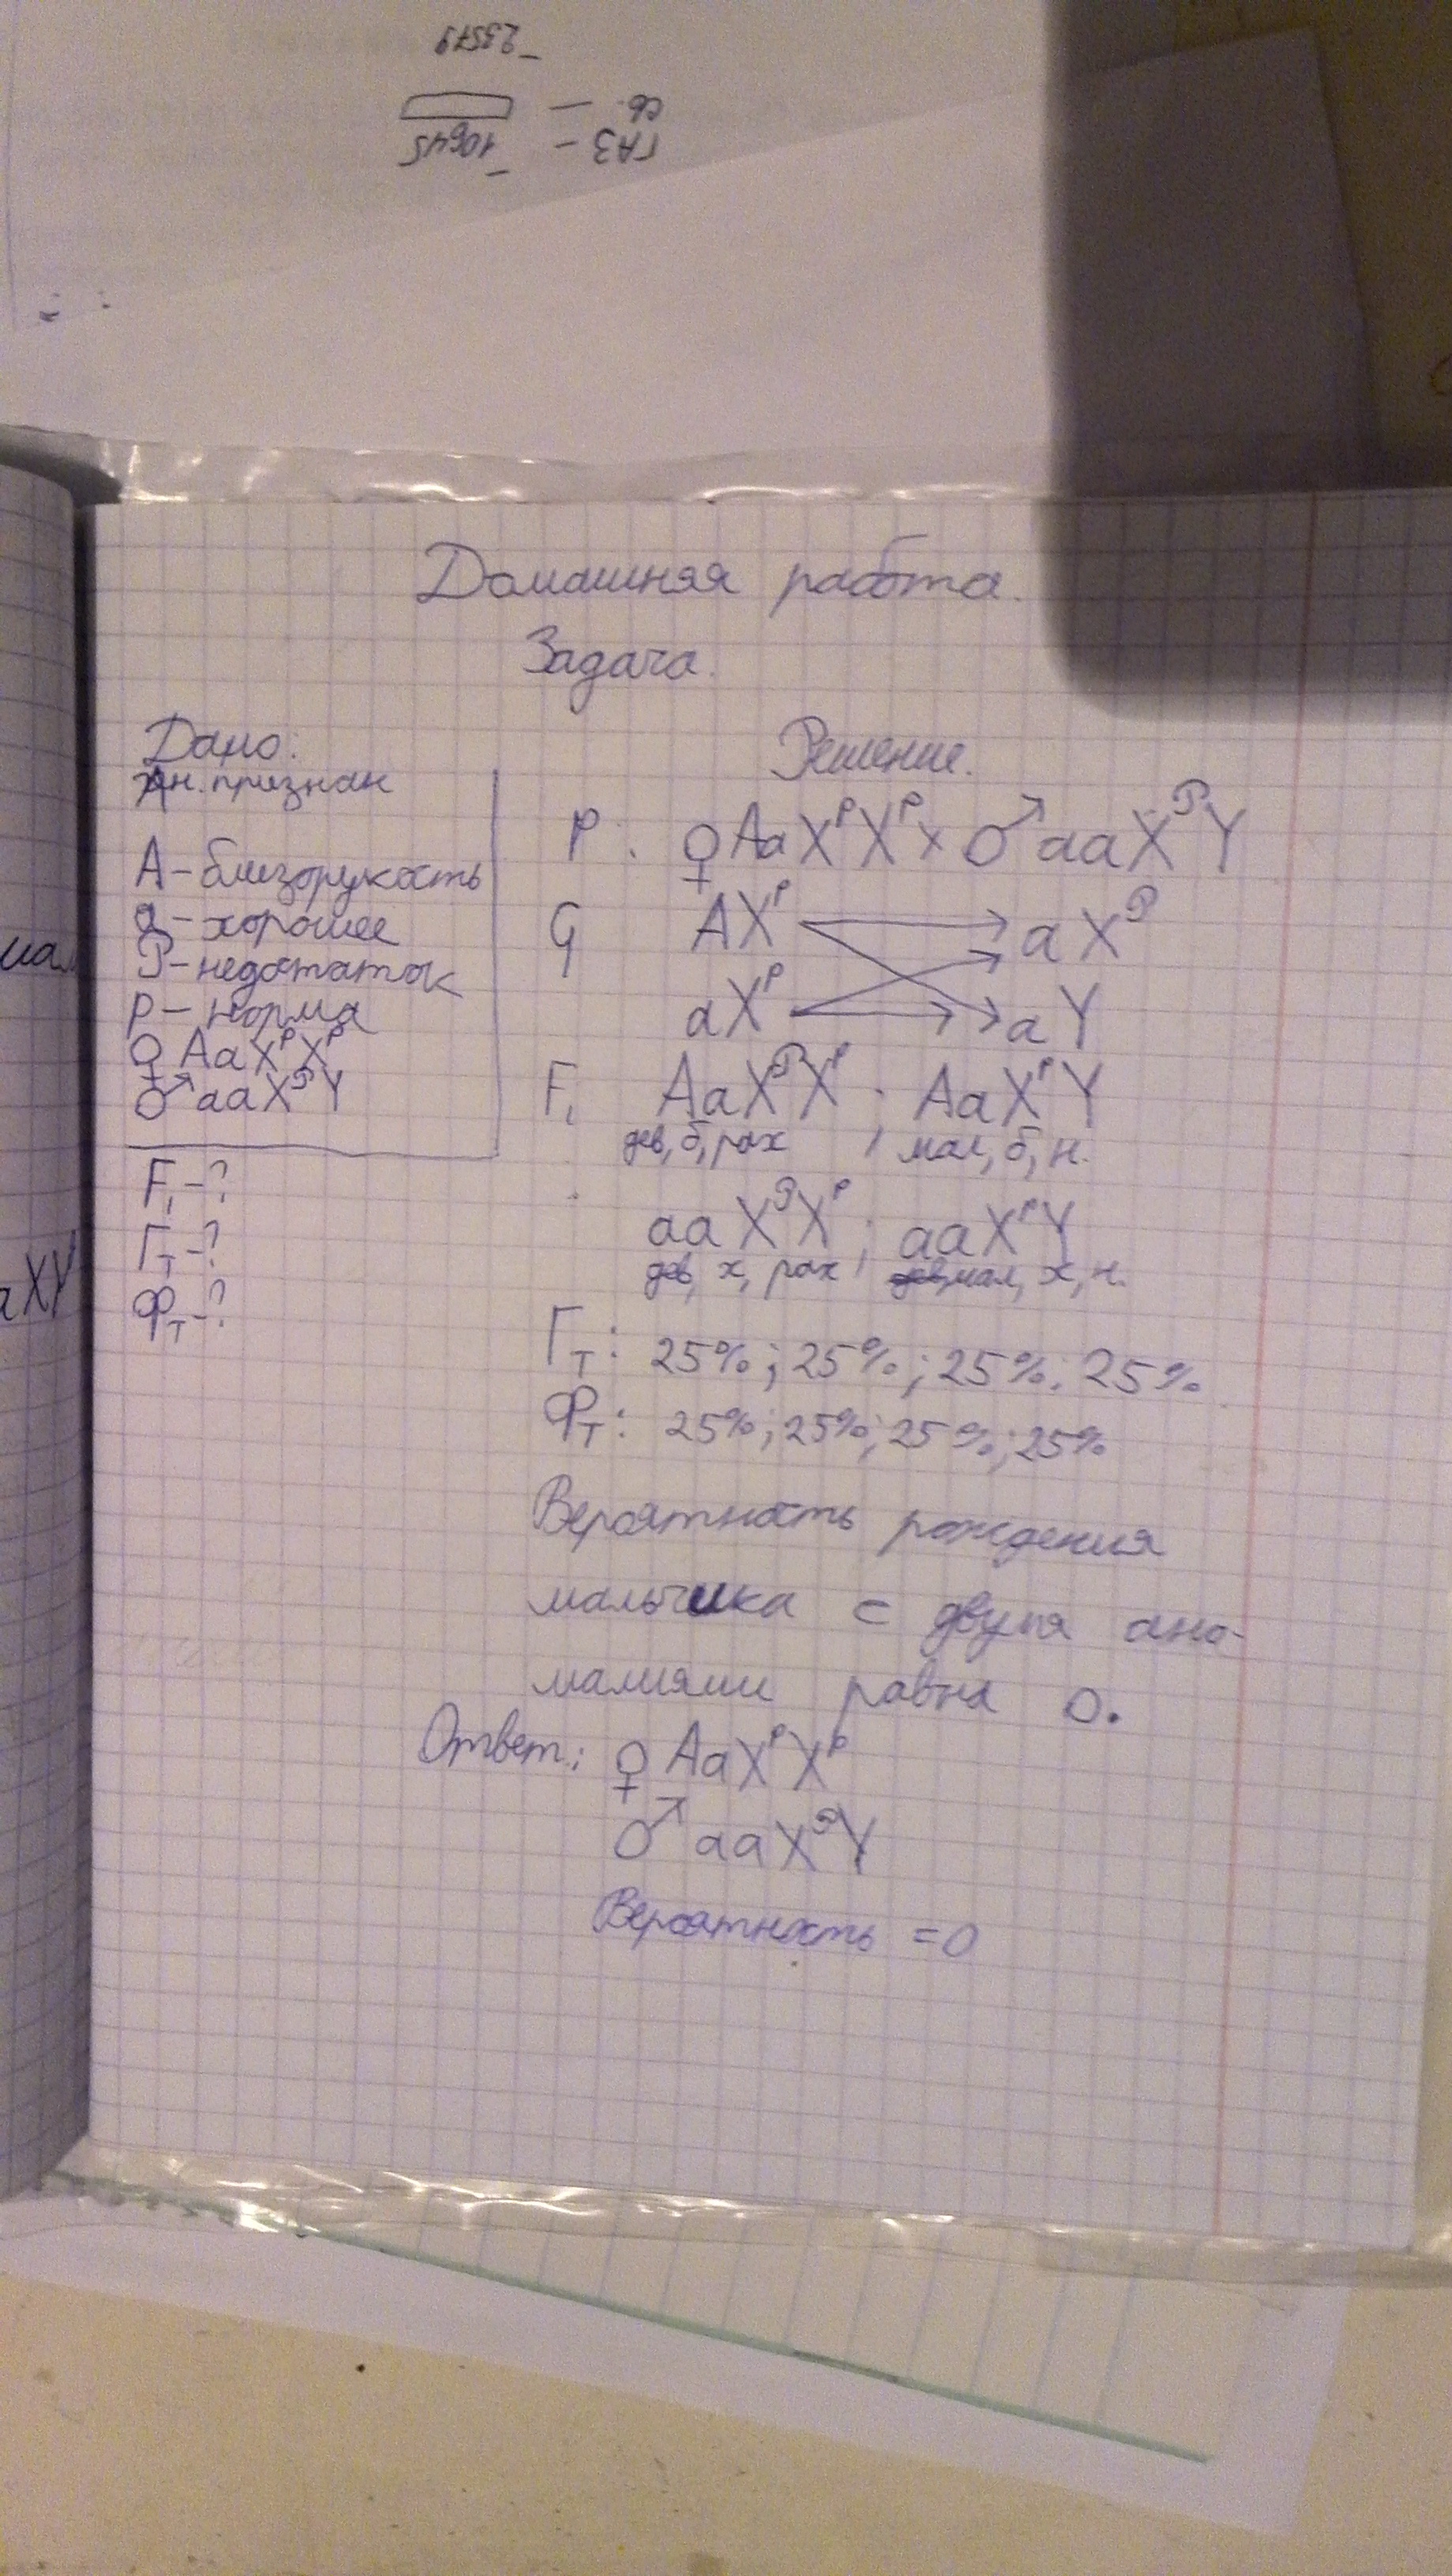 23579
СВ. —
ГАЗ — 10645
Домашняя работа.
Задача.
Дано:
Ан. признак
А – близорукость
а – хорошее
Р – недостаток
р – норма
♀ AaXᵖXᵖ
♂ aaXᴾY
F₁ – ?
Гт – ?
Фт – ?
Решение.
P: ♀ AaXᵖXᵖ x ♂ aaXᴾY
G AXᵖ aXᴾ
aXᵖ aY
F₁ AaXᴾXᵖ ; AaXᵖY
дев, б, рах ; мал, б, н.
aaXᴾXᵖ ; aaXᵖY
дев, х, рах ; мал, х, н.
Гт: 25%; 25%; 25%; 25%
Фт: 25%; 25%; 25%; 25%
Вероятность рождения
мальчика с двумя ано-
малиями равна 0.
Ответ: ♀ AaXᵖXᵖ
♂ aaXᴾY
Вероятность = 0
мал
аXY